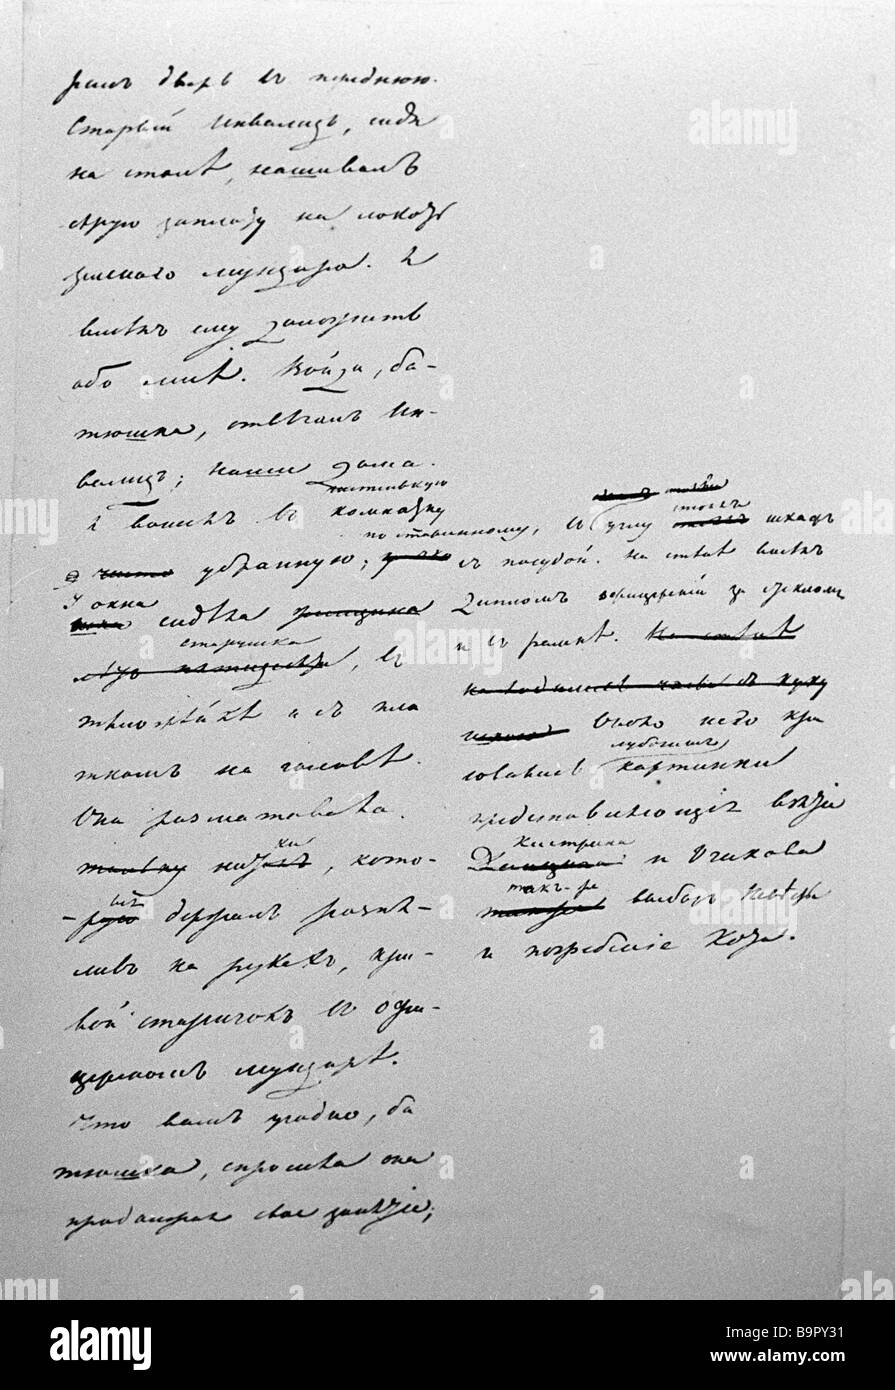 дверь въ переднюю.
Старый инвалидъ, сидя
на столѣ, нашивалъ
сѣрую заплату на локоть
зеленаго мундира. Я
велѣлъ ему доложить
обо мнѣ. Войди, ба-
тюшка, отвѣчалъ ин-
валидъ; наши дома.
чистенькую
Я вошелъ въ комнатку
по старинному,
чисто убранную;
У окна
сидѣла женщина
старушка
лѣтъ пятидесяти, въ
тѣлогрѣйкѣ и съ пла
ткомъ на головѣ.
Она разматывала
нитки, кото-
рыя держалъ распя-
ливъ на рукахъ, кри-
вой старичокъ въ офи-
церскомъ мундирѣ.
Что вамъ угодно, ба
тюшка, спросила она
продолжая свое занятіе;
въ углу стоялъ шкафъ
съ посудой. На стѣнѣ висѣлъ
Дипломъ офицерскій за стекломъ
и въ рамкѣ. На стѣнѣ
Около него кра
лубочныя
совались картинки
представляющіе взятіе
Кистрина
и Очакова
также
выборъ невѣсты
и погребеніе Кота.
alamy
Image ID: B9PY31
www.alamy.com